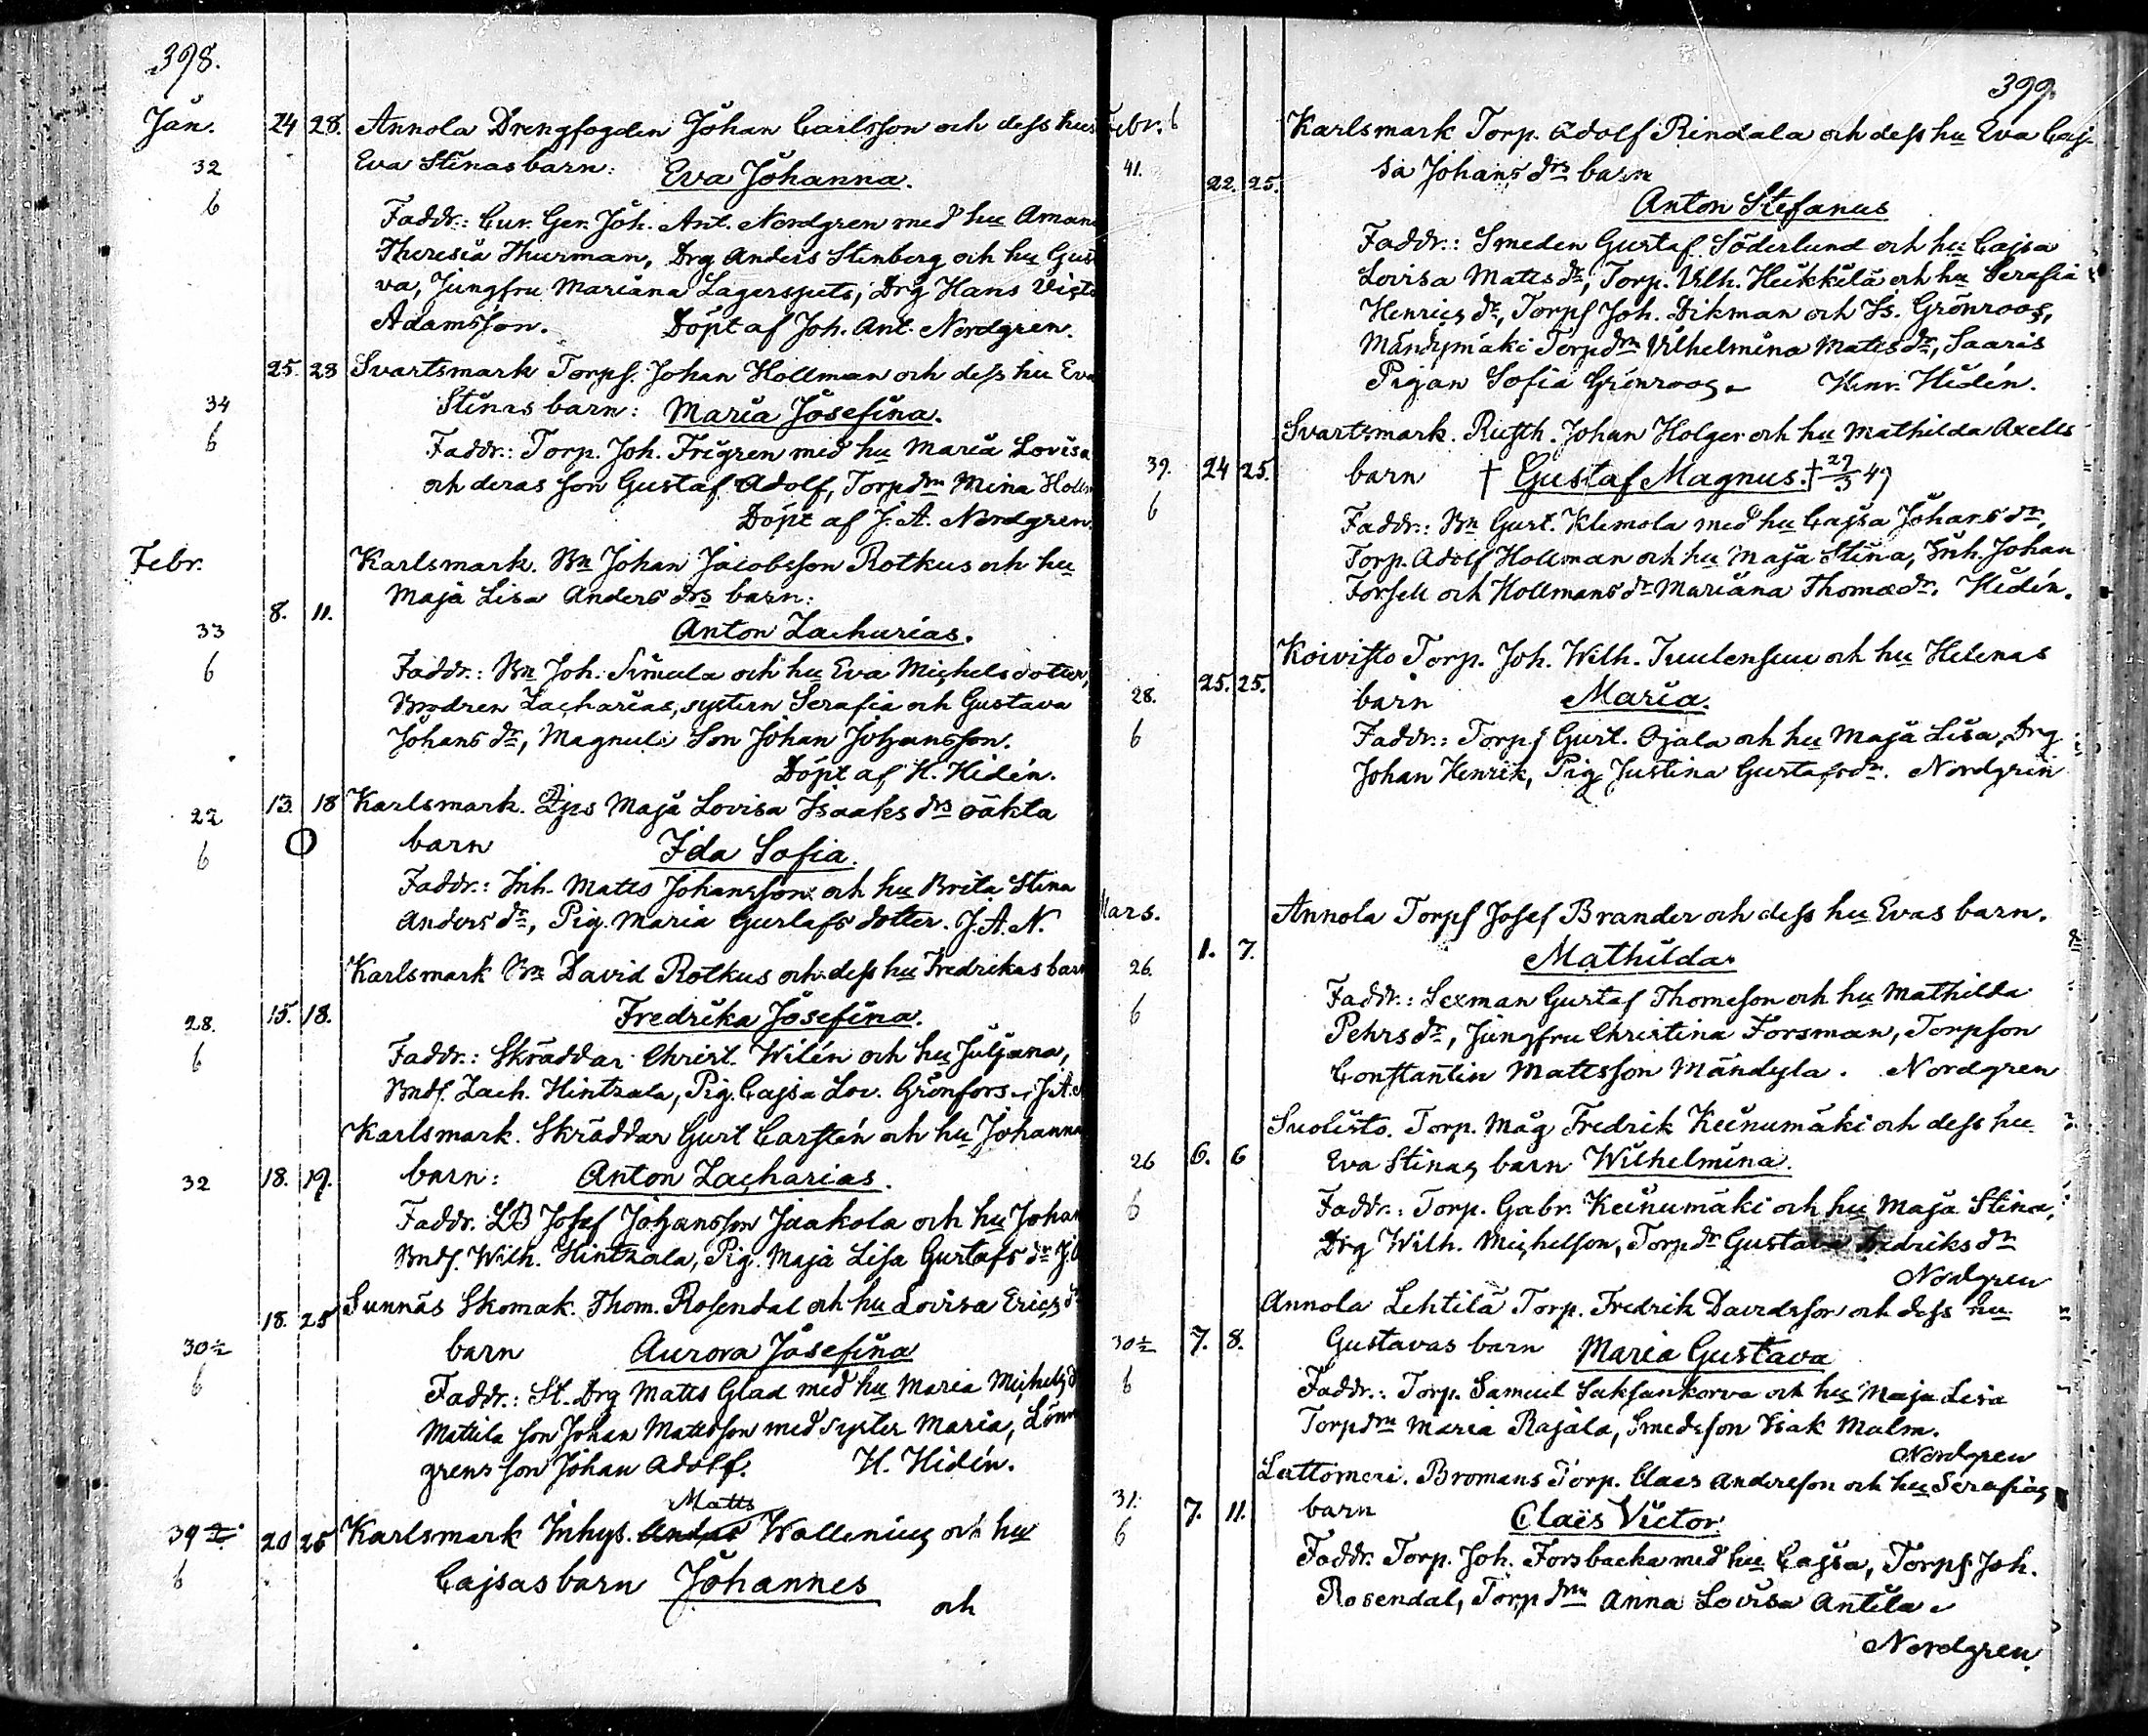 398.
Jan. 24 28. Annola Drengfogden Johan Carlsson och dess hus
32 Eva Stinas barn: Eva Johanna.
6 Faddr.: Cur. Ger. Joh. Ant. Nordgren med hu Aman
Theresia Thurman, Drg Anders Stenberg och hu Gus
va, Jungfru Mariana Lagerspets, Drg Hans
Adamsson. Döpt af Joh. Ant. Nordgren.
25. 28 Svartsmark Torps. Johan Hollman och dess hu Eva
34 Stinas barn: Maria Josefina.
6 Faddr.: Torp. Joh. Frigren med hu Maria Lovisa
och deras son Gustaf Adolf, Torpdrn Mina Hollm
Döpt af J. A. Nordgren.
Febr. Karlsmark. Bn Johan Jacobsson Rotkus och hu
8. 11. Maja Lisa Anders drs barn:
33 Anton Zacharias.
6 Faddr.: Bn Joh. Simula och hu Eva Michelsdotter,
Brodren Zacharias, systern Serafia och Gustava
Johans dr, Magnula Son Johan Johansson.
Döpt af H. Hidén.
22 13. 18 Karlsmark. Maja Lovisa Isaaks drs oäkta
6 barn Ida Sofia.
Faddr.: Inh. Matts Johansson och hu Brita Stina
Anders dr, Pig. Maria Gustafs dotter. J. A. N.
Karlsmark Bn David Rotkus och dess hu Fredrikas barn
28. 15. 18. Fredrika Josefina.
6 Faddr.: Skräddar Christ. Wilén och hu Juljana,
Bnds. Zach. Hintzala, Pig. Cajsa Lov. Grönfors. J. A. N
Karlsmark. Skräddar Gust Carstén och hu Johanna
32 18. 19. barn: Anton Zacharias.
Faddr. LB Josef Johansson Jaakola och hu Johan
Bnds. Wilh. Hintzala, Pig. Maja Lisa Gustafs dr J.
18. 25 Sunnäs Skomak. Thom. Rosendal och hu Lovisa Erics d
30 barn Aurora Josefina
6 Faddr.: St. Drg Matts Glad med hu Maria Michels d
Mattila son Johan Mattsson med syster Maria, Lönn
grens son Johan Adolf. H. Hidén.
Matts
39 20 25 Karlsmark Inhys. Anders Wallenius och hu
6 Cajsas barn Johannes
och
399.
Febr. 6 Karlsmark Torp. Adolf Rindala och dess hu Eva Caj-
41. 22. 25. sa Johans drs barn
Anton Stefanus
Faddr.: Smeden Gustaf Söderlund och hu Cajsa
Lovisa Matts dr, Torp. Vilh. Heikkilä och hu Serafia
Henrics dr, Torps Joh. Dikman och Is. Grönroos,
Mändymäki Torpdrn Vilhelmina Matts dr, Saaris
Pigan Sofia Grönroos. Henr. Hidén.
Svartsmark. Rusth. Johan Holger och hu Mathilda Axells
39. 24 25. barn † Gustaf Magnus. † 27/3 49
6 Faddr.: Bn Gust. Klemola med hu Cajsa Johans dr,
Torp. Adolf Hollman och hu Maja Stina, Inh. Johan
Forsell och Hollmans dr Mariana Thomædr. Hidén.
Koivisto Torp. Joh. Wilh. Tuulensuu och hu Helenas
28. 25. 25. barn Maria.
6 Faddr.: Torps Gust. Ojala och hu Maja Lisa, Drg
Johan Henrik, Pig Justina Gustafsdr. Nordgrén
Mars. Annola Torps Josef Brander och dess hu Evas barn.
26. 1. 7. Mathilda
6 Faddr.: Sexman Gustaf Thomeson och hu Mathilda
Pehrs dr, Jungfru Christina Forsman, Torpson
Constantin Mattsson Mändyla. Nordgren
Suolisto. Torp. Måg Fredrik Keinumäki och dess hu
26 6. 6 Eva Stinas barn Wilhelmina.
6 Faddr.: Torp. Gabr. Keinumäki och hu Maja Stina,
Drg Wilh. Michelson, Torpdr Gustava Fredriks dr
Nordgren
Annola Lehtilä Torp. Fredrik Davidsson och dess hu
30 7. 8. Gustavas barn Maria Gustava
6 Faddr.: Torp. Samuel Saksankorva och hu Maja Lisa
Torpdrn Maria Rajala, Smedsson Isak Malm.
Nordgren
Lattomeri. Bromans Torp. Claes Andersson och hu Serafias
31. 7. 11. barn Claës Victor
6 Faddr. Torp. Joh. Forsbacka med hu Cajsa, Torps Joh.
Rosendal, Torpdrn Anna Lovisa Antila.
Nordgren.